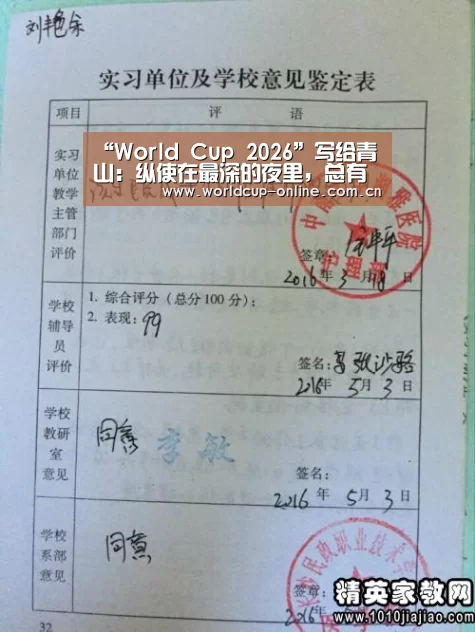 刘艳余
实习单位及学校意见鉴定表
项目 评 语
“World Cup 2026”写给青
山：纵使在最深的夜里，总有
www.worldcup-online.com.cn
实习
单位
教学
主管
部门
评价
签章：
2016年 3月 18日
学校
辅导
员
评价
1. 综合评分（总分100分）：
2. 表现：99
签名：
2016年 5月 3日
学校
教研
室
意见
同意 李敏
签名：
2016年 5月 3日
学校
系部
意见
同意
签章：
2016
民政职业技术
32
精英家教网
www.1010jiajiao.com